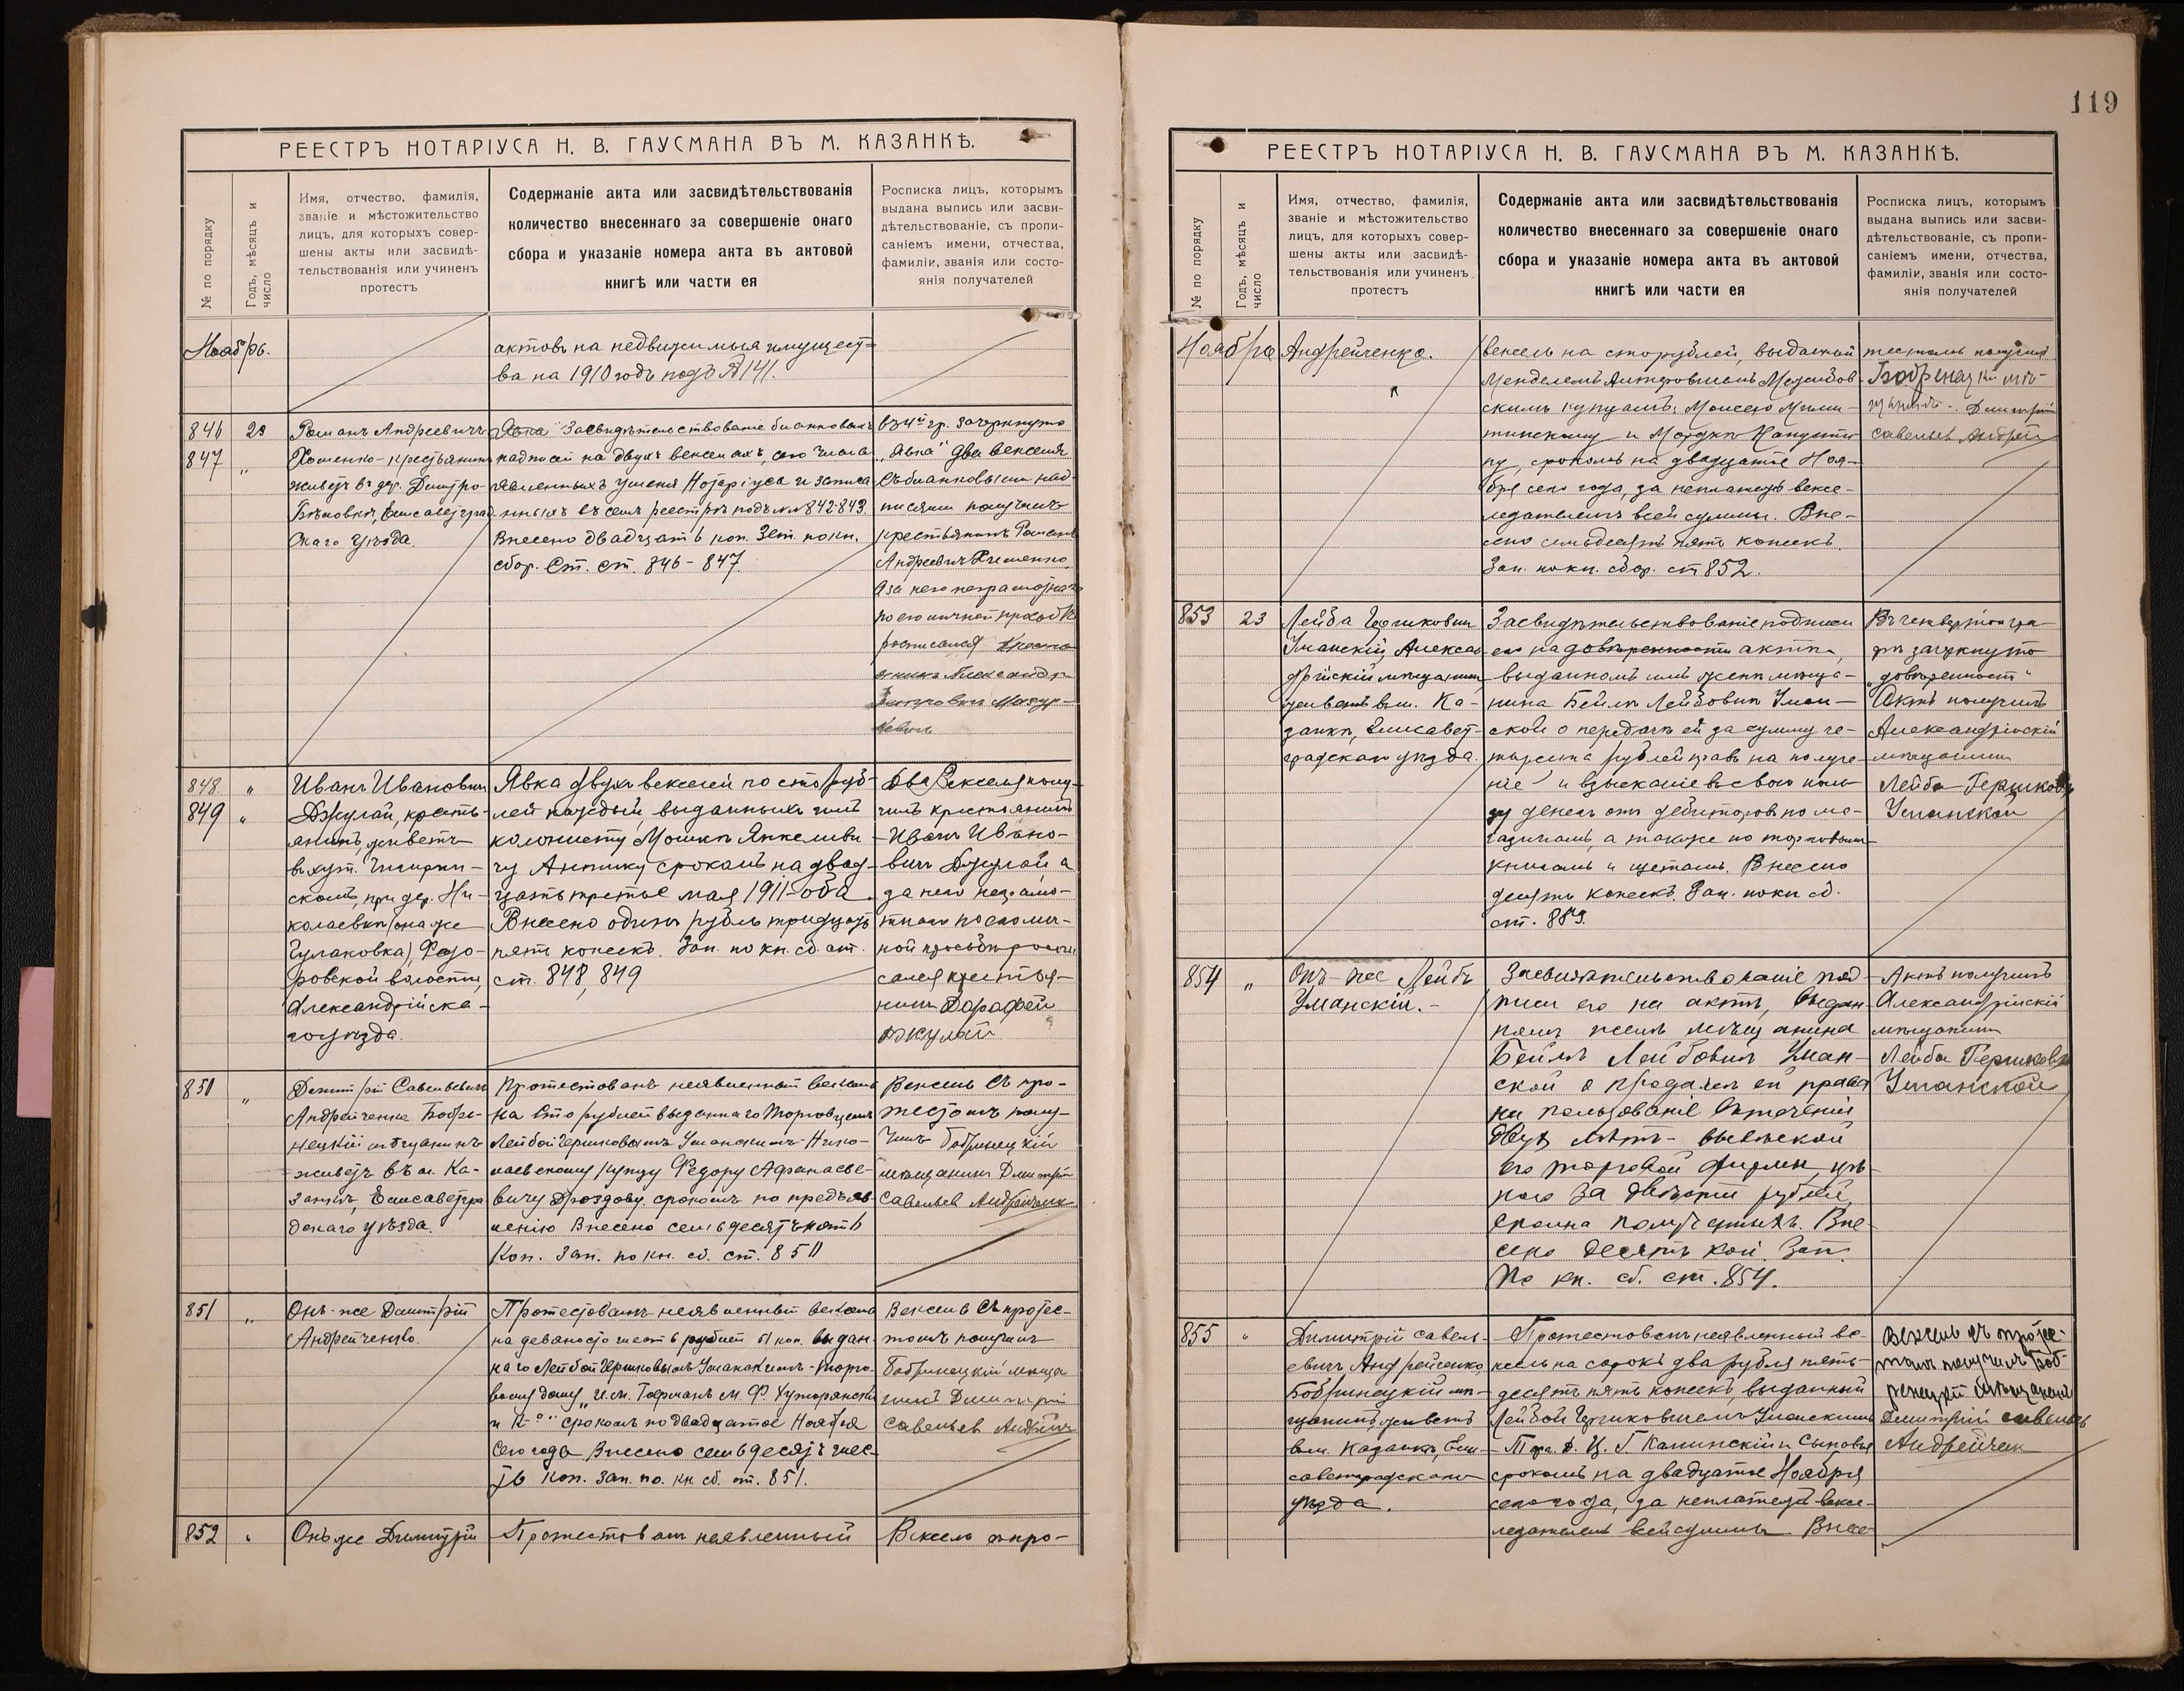 РЕЕСТРЪ НОТАРІУСА Н. В. ГАУСМАНА ВЪ М. КАЗАНКѢ.
№ по порядку
Годъ, мѣсяцъ и
число
Имя, отчество, фамилія,
званіе и мѣстожительство
лицъ, для которыхъ совер-
шены акты или засвидѣ-
тельствованія или учиненъ
протестъ
Содержаніе акта или засвидѣтельствованія
количество внесеннаго за совершеніе онаго
сбора и указаніе номера акта въ актовой
книгѣ или части ея
Росписка лицъ, которымъ
выдана выпись или засви-
дѣтельствованіе, съ пропи-
саніемъ имени, отчества,
фамиліи, званія или состо-
янія получателей
Ноябрь.
актовъ на недвижимыя имущест-
ва на 1910 годъ подъ № 141.
846 23
847 "
Романъ Андреевичъ
Хоменко - крестьянинъ
живетъ въ дер. Дмитро-
Бѣловкѣ, Елисаветград
скаго уѣзда.
Явка Засвидѣтельствованіе бланковыхъ
надписей на двухъ векселяхъ, сего числа
явленныхъ у меня Нотаріуса и записа
нныхъ въ семъ реестрѣ подъ №№ 842-843.
Внесено двадцать коп. Зап. по кн.
сбор. Ст. ст. 846-847.
въ 4й гр. зачеркнуто
"Явка" Два векселя
съ бланковыми над-
писями получилъ
крестьянинъ Романъ
Андреевичъ Хоменко
а за него неграмотнаго
по его личной просьбѣ
росписался
848 "
849 "
Иванъ Ивановичъ
Джулай, кресть-
янинъ, живетъ
въ хут.
скомъ, при дер. Ни-
колаевкѣ (она же
Гулаковка), Федо-
ровской волости,
Александрійска-
го уѣзда.
Явка двухъ векселей по сто руб-
лей каждый, выданныхъ имъ
колонисту Мошкѣ Янкелеви-
чу Аннику срокомъ на двад-
цать третье мая 1911 - оба.
Внесено одинъ рубль тридцать
пять копеекъ. Зап. по кн. сб. ст.
ст. 848, 849
Два векселя полу-
чилъ крестьянинъ
Иванъ Ивано-
вичъ Джулай а
за него неграмо-
тнаго по его лич-
ной просьбѣ роспи
сался крестья-
нинъ Дорофей
Джулай
850 "
Дмитрій Савельевичъ
Андрейченко Бобри-
нецкій мѣщанинъ
живетъ въ м. Ка-
занкѣ, Елисаветгра
дскаго уѣзда.
Протестованъ неявленный вексель
на сто рублей выданнаго торговцемъ
Лейбой Гершковымъ Уманскимъ Нико-
лаевскому купцу Федору Афанасье-
вичу Дроздову срокомъ по предъяв
ленію Внесено семьдесятъ пять
коп. Зап. по кн. сб. ст. 850
Вексель съ про-
тестомъ полу-
чилъ бобринецкій
мѣщанинъ Дмитрій
Савельев Андрейченк
851 "
Онъ-же Дмитрій
Андрейченко.
Протестованъ неявленный вексель
на девяносто шесть рублей 51 коп. выдан
наго Лейбой Гершковымъ Уманскимъ - торго-
вому дому "И. М. Гофманъ М. Ф. Хуторянскій
и Ко" срокомъ по двадцатое Ноября
сего года Внесено семьдесятъ шес-
ть коп. Зап. по. кн. сб. ст. 851.
Вексель съ протес-
томъ получилъ
бобринецкій мѣща
нинъ Дмитрій
Савельев Андрейч
852 "
Онъ же Димитрій
Протестованъ неявленный
Вексель с про-
119
РЕЕСТРЪ НОТАРІУСА Н. В. ГАУСМАНА ВЪ М. КАЗАНКѢ.
№ по порядку
Годъ, мѣсяцъ и
число
Имя, отчество, фамилія,
званіе и мѣстожительство
лицъ, для которыхъ совер-
шены акты или засвидѣ-
тельствованія или учиненъ
протестъ
Содержаніе акта или засвидѣтельствованія
количество внесеннаго за совершеніе онаго
сбора и указаніе номера акта въ актовой
книгѣ или части ея
Росписка лицъ, которымъ
выдана выпись или засви-
дѣтельствованіе, съ пропи-
саніемъ имени, отчества,
фамиліи, званія или состо-
янія получателей
Ноября
Андрейченко.
вексель на сто рублей, выданный
Менделемъ
скимъ купцамъ: Моисею
и Мордкѣ
ну, срокомъ на двадцатое Ноя-
бря сего года, за неплатежъ вексе-
ледателемъ всей суммы. Вне-
сено семьдесятъ пять копеекъ.
Зап. по кн. сбор. ст. 852.
тестомъ получилъ
Бобренецкій мѣ-
щанинъ - Дмитрій
Савельев Андрей
853 23
Лейба Гершковичъ
Уманскій, Алексан
дрійскій мѣщанинъ,
живетъ въ м. Ка-
занкѣ, Елисавет-
градскаго уѣзда.
Засвидѣтельствованіе подписи
его на довѣренности актѣ,
выданномъ имъ женѣ мѣща-
нина Бейлѣ Лейбовнѣ Уман-
ской о передачѣ ей за сумму че-
тыреста рублей правъ на получе-
ніе и взысканіе въ свою поль-
зу денегъ отъ дебиторовъ по ма-
газинамъ, а также по торговымъ
книгамъ и щетамъ. Внесено
десять копеекъ. Зап. по кн. сб.
ст. 853.
Въ четвертой гра-
фѣ зачеркнуто
"довѣренност"
Актъ получилъ
Александрійскій
мѣщанинъ
Лейба Гершкови
Уманской
854 "
Онъ-же Лейба
Уманскій. -
Засвидѣтельствованіе под
писи его на актѣ, выдан-
номъ женѣ мѣщанина
Бейлѣ Лейбовнѣ Уман-
ской о продажѣ ей права
на пользованіе въ теченіи
двухъ лѣтъ - вывѣской
его торговой фирмы, цѣ-
ною за двѣсти рублей,
сполна полученныхъ. Вне-
сено десять коп. Зап.
по кн. сб. ст. 854.
Актъ получилъ
Александрійскій
мѣщанинъ
Лейба Гершкови
Уманской
855 "
Димитрій Савель-
евичъ Андрейченко,
Бобринецкій мѣ-
щанинъ, живетъ
въ м. Казанкѣ, Ели-
саветградскаго
уѣзда.
Протестованъ неявленный ве-
ксель на сорокъ два рубля пять-
десятъ пять копеекъ, выданный
Лейбой Гершковичемъ Уманскимъ
Калинскій и Сыновья
срокомъ на двадцатое Ноября
сего года, за неплатежъ вексе-
ледателемъ всей суммы Внесе-
Вексель съ проте-
томъ получилъ Боб-
ренецкій Мѣщанинъ
Дмитрій савельевъ
Андрейчен